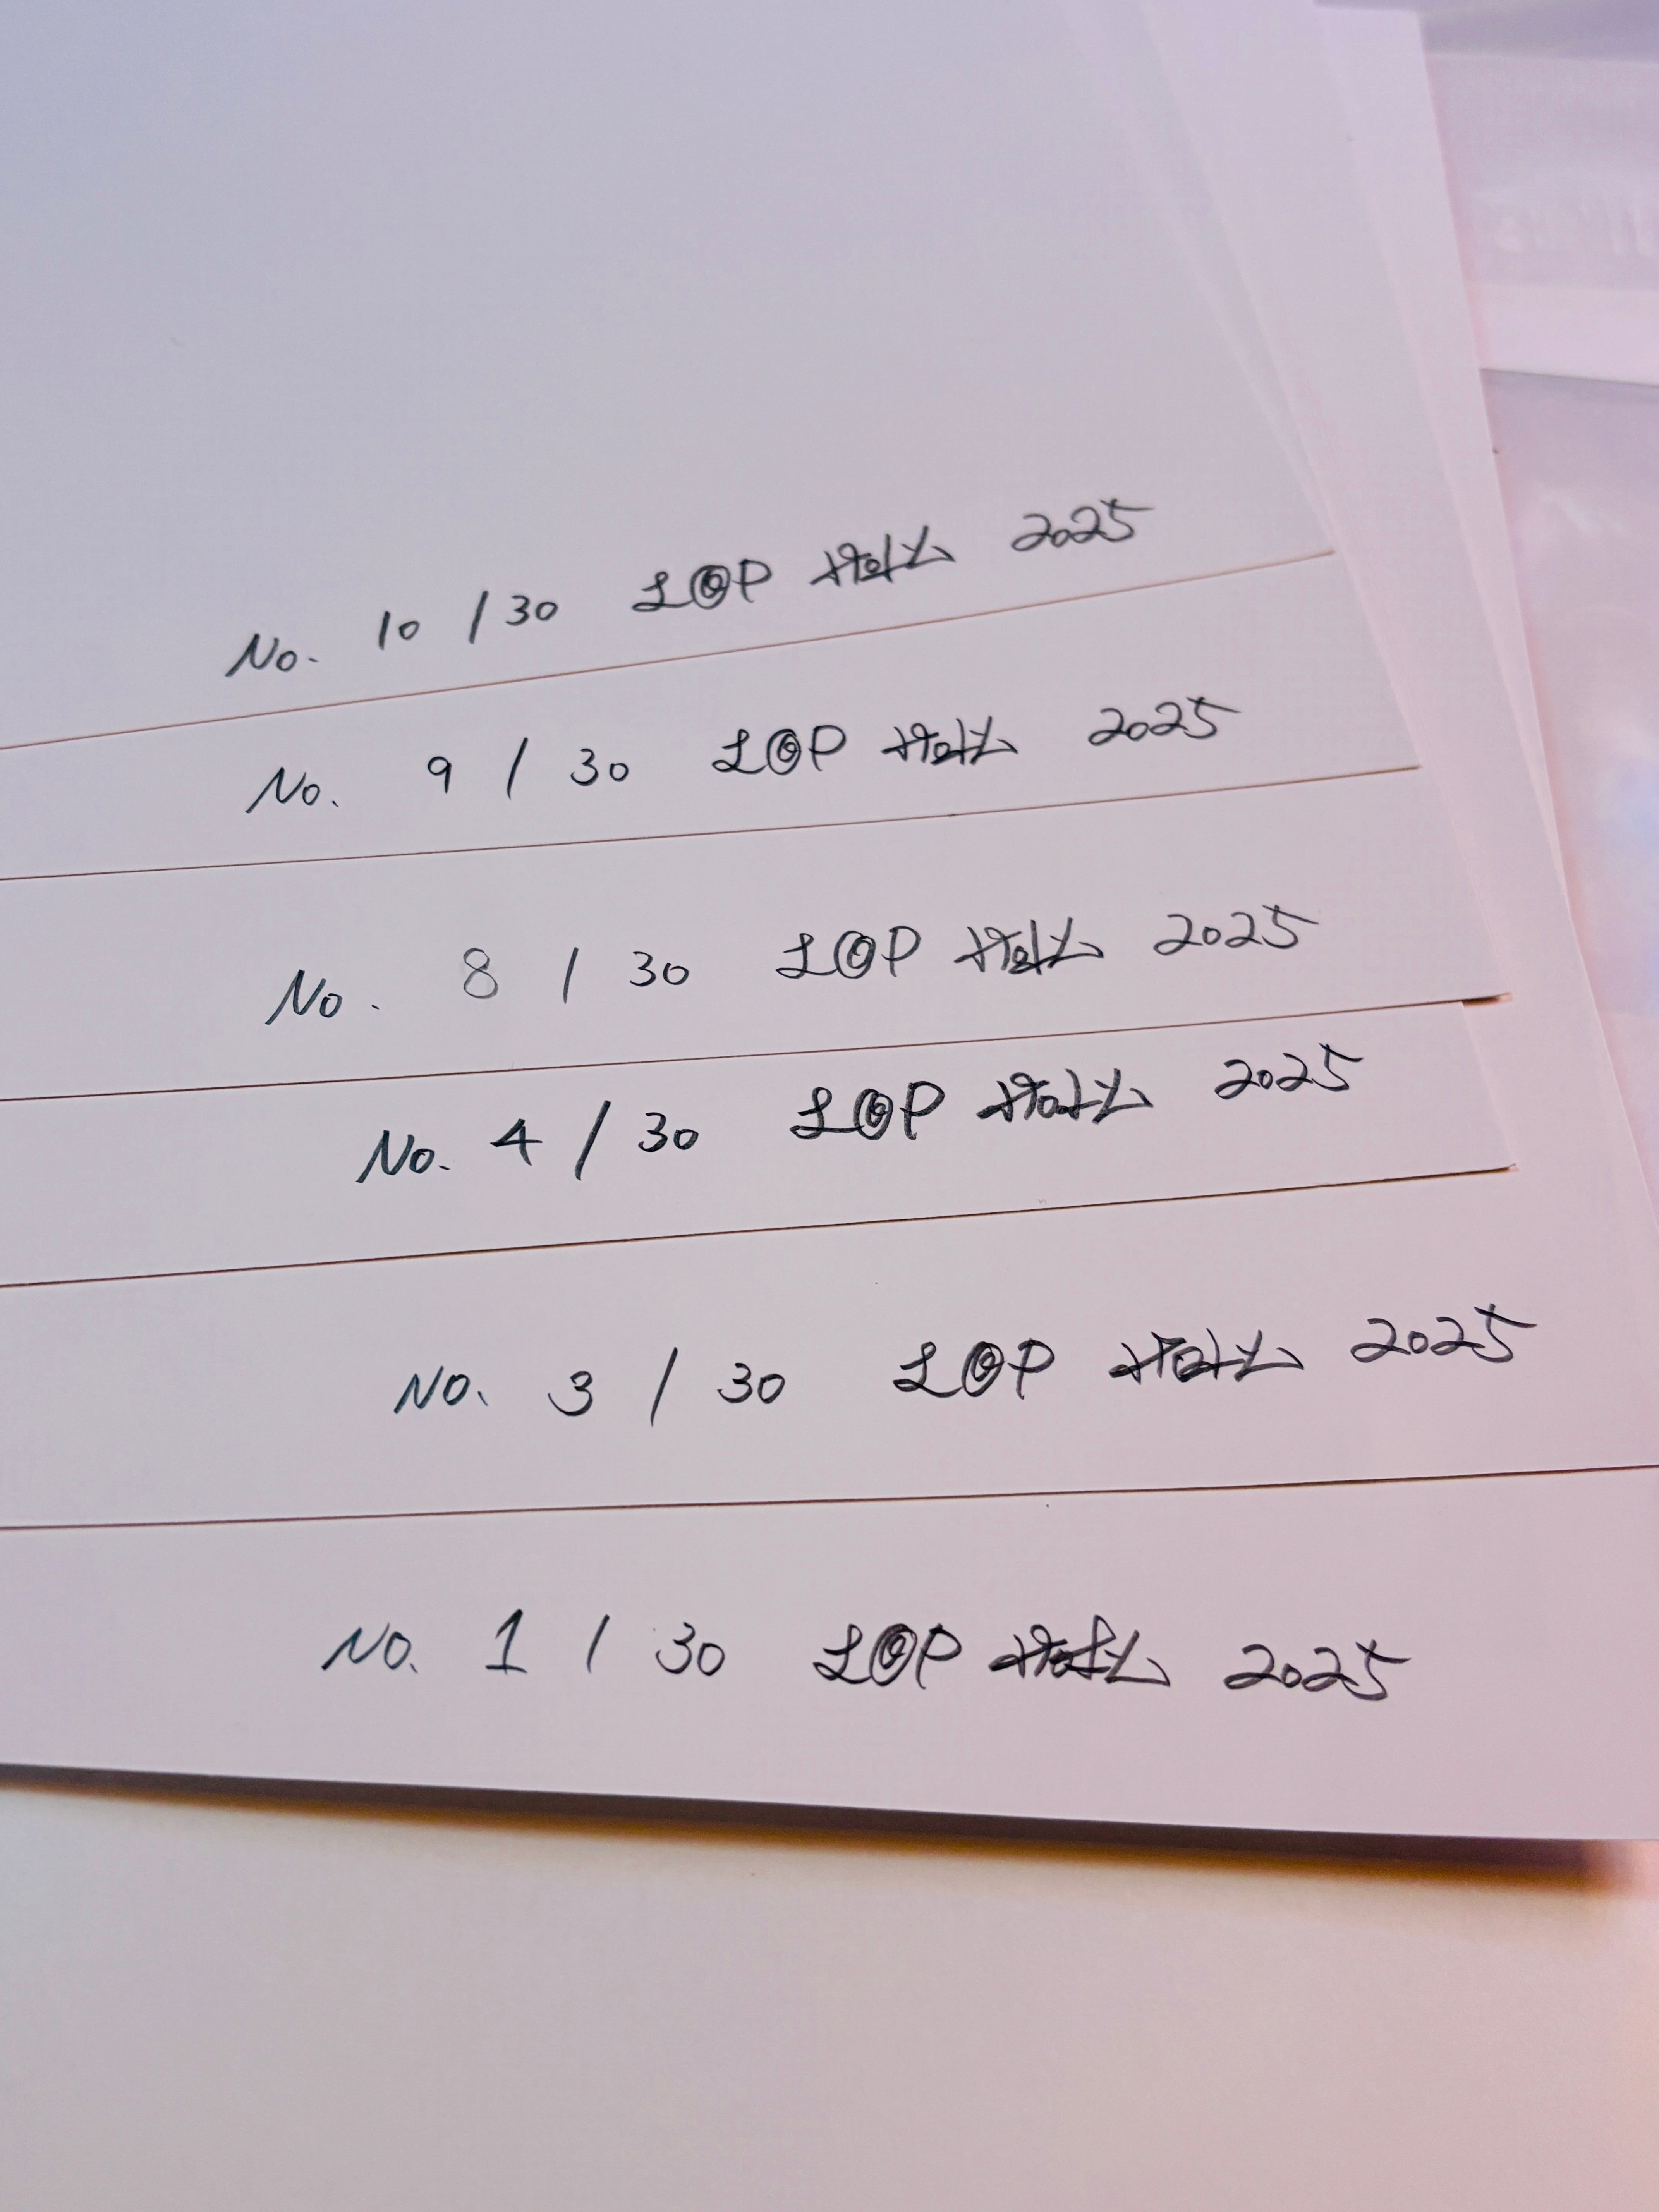 No. 10 / 30 LOP 2025
No. 9 / 30 LOP 2025
No. 8 / 30 LOP 2025
No. 4 / 30 LOP 2025
No. 3 / 30 LOP 2025
No. 1 / 30 LOP 2025